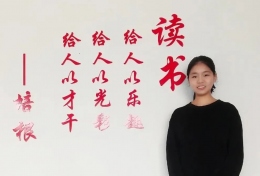 读书
给人以乐趣
给人以光彩
给人以才干
——培根